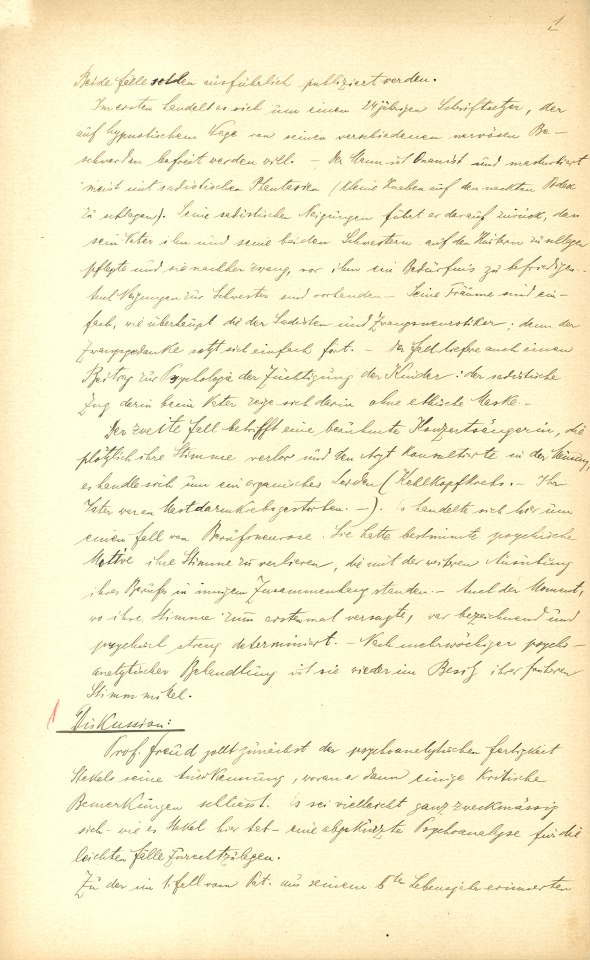 1
Beide Fälle sollen ausführlich publiziert werden.
Im ersten handelt es sich um einen 24jährigen Schriftsetzer, der
auf hypnotischem Wege von seinen verschiedenen nervösen Be-
schwerden befreit werden will. – Der Mann ist Onanist und masturbiert
meist mit sadistischen Phantasien (kleine Knaben auf den nackten Podex
zu schlagen). Seine sadistischen Neigungen führt er darauf zurück, dass
sein Vater ihn und seine beiden Schwestern auf den Hintern zu schlagen
pflegte und sie nachher zwang, vor ihm ein Bedürfnis zu befriedigen. –
Auch Neigungen zur Schwester sind vorhanden – Seine Träume sind ein-
fach, wie überhaupt die der Sadisten und Zwangsneurotiker; denn der
Zwangsgedanke setzt sich einfach fort. – Der Fall liefere auch einen
Beitrag zur Psychologie der Züchtigung der Kinder: der sadistische
Zug darin beim Vater zeige sich darin ohne ethische Maske –
Der zweite Fall betrifft eine berühmte Konzertsängerin, die
plötzlich ihre Stimme verlor und den Arzt konsultierte in der Meinung,
es handle sich um ein organisches Leiden (Kehlkopfkrebs. – Ihr
Vater war an Mastdarmkrebs gestorben. –). Es handelte sich hier um
einen Fall von Berufsneurose. Sie hatte bestimmte psychische
Motive ihre Stimme zu verlieren, die mit der weiteren Ausübung
ihres Berufs in innigem Zusammenhang standen. – Auch der Moment,
wo ihre Stimme zum erstenmal versagte, war bezeichnend und
psychisch streng determiniert. – Nach mehrwöchiger psycho-
analytischer Behandlung ist sie wieder im Besitz ihrer früheren
Stimmmittel.
Diskussion:
Prof. Freud zollt zunächst der psychoanalytischen Fertigkeit
Stekels seine Anerkennung, woran er dann einige kritische
Bemerkungen schliesst. Es sei vielleicht ganz zweckmässig
sich – wie es Stekel hier tat – eine abgekürzte Psychoanalyse für die
leichten Fälle zurechtzulegen.
Zu der im 1. Fall vom Pat. aus seinem 6ten Lebensjahr erinnerten